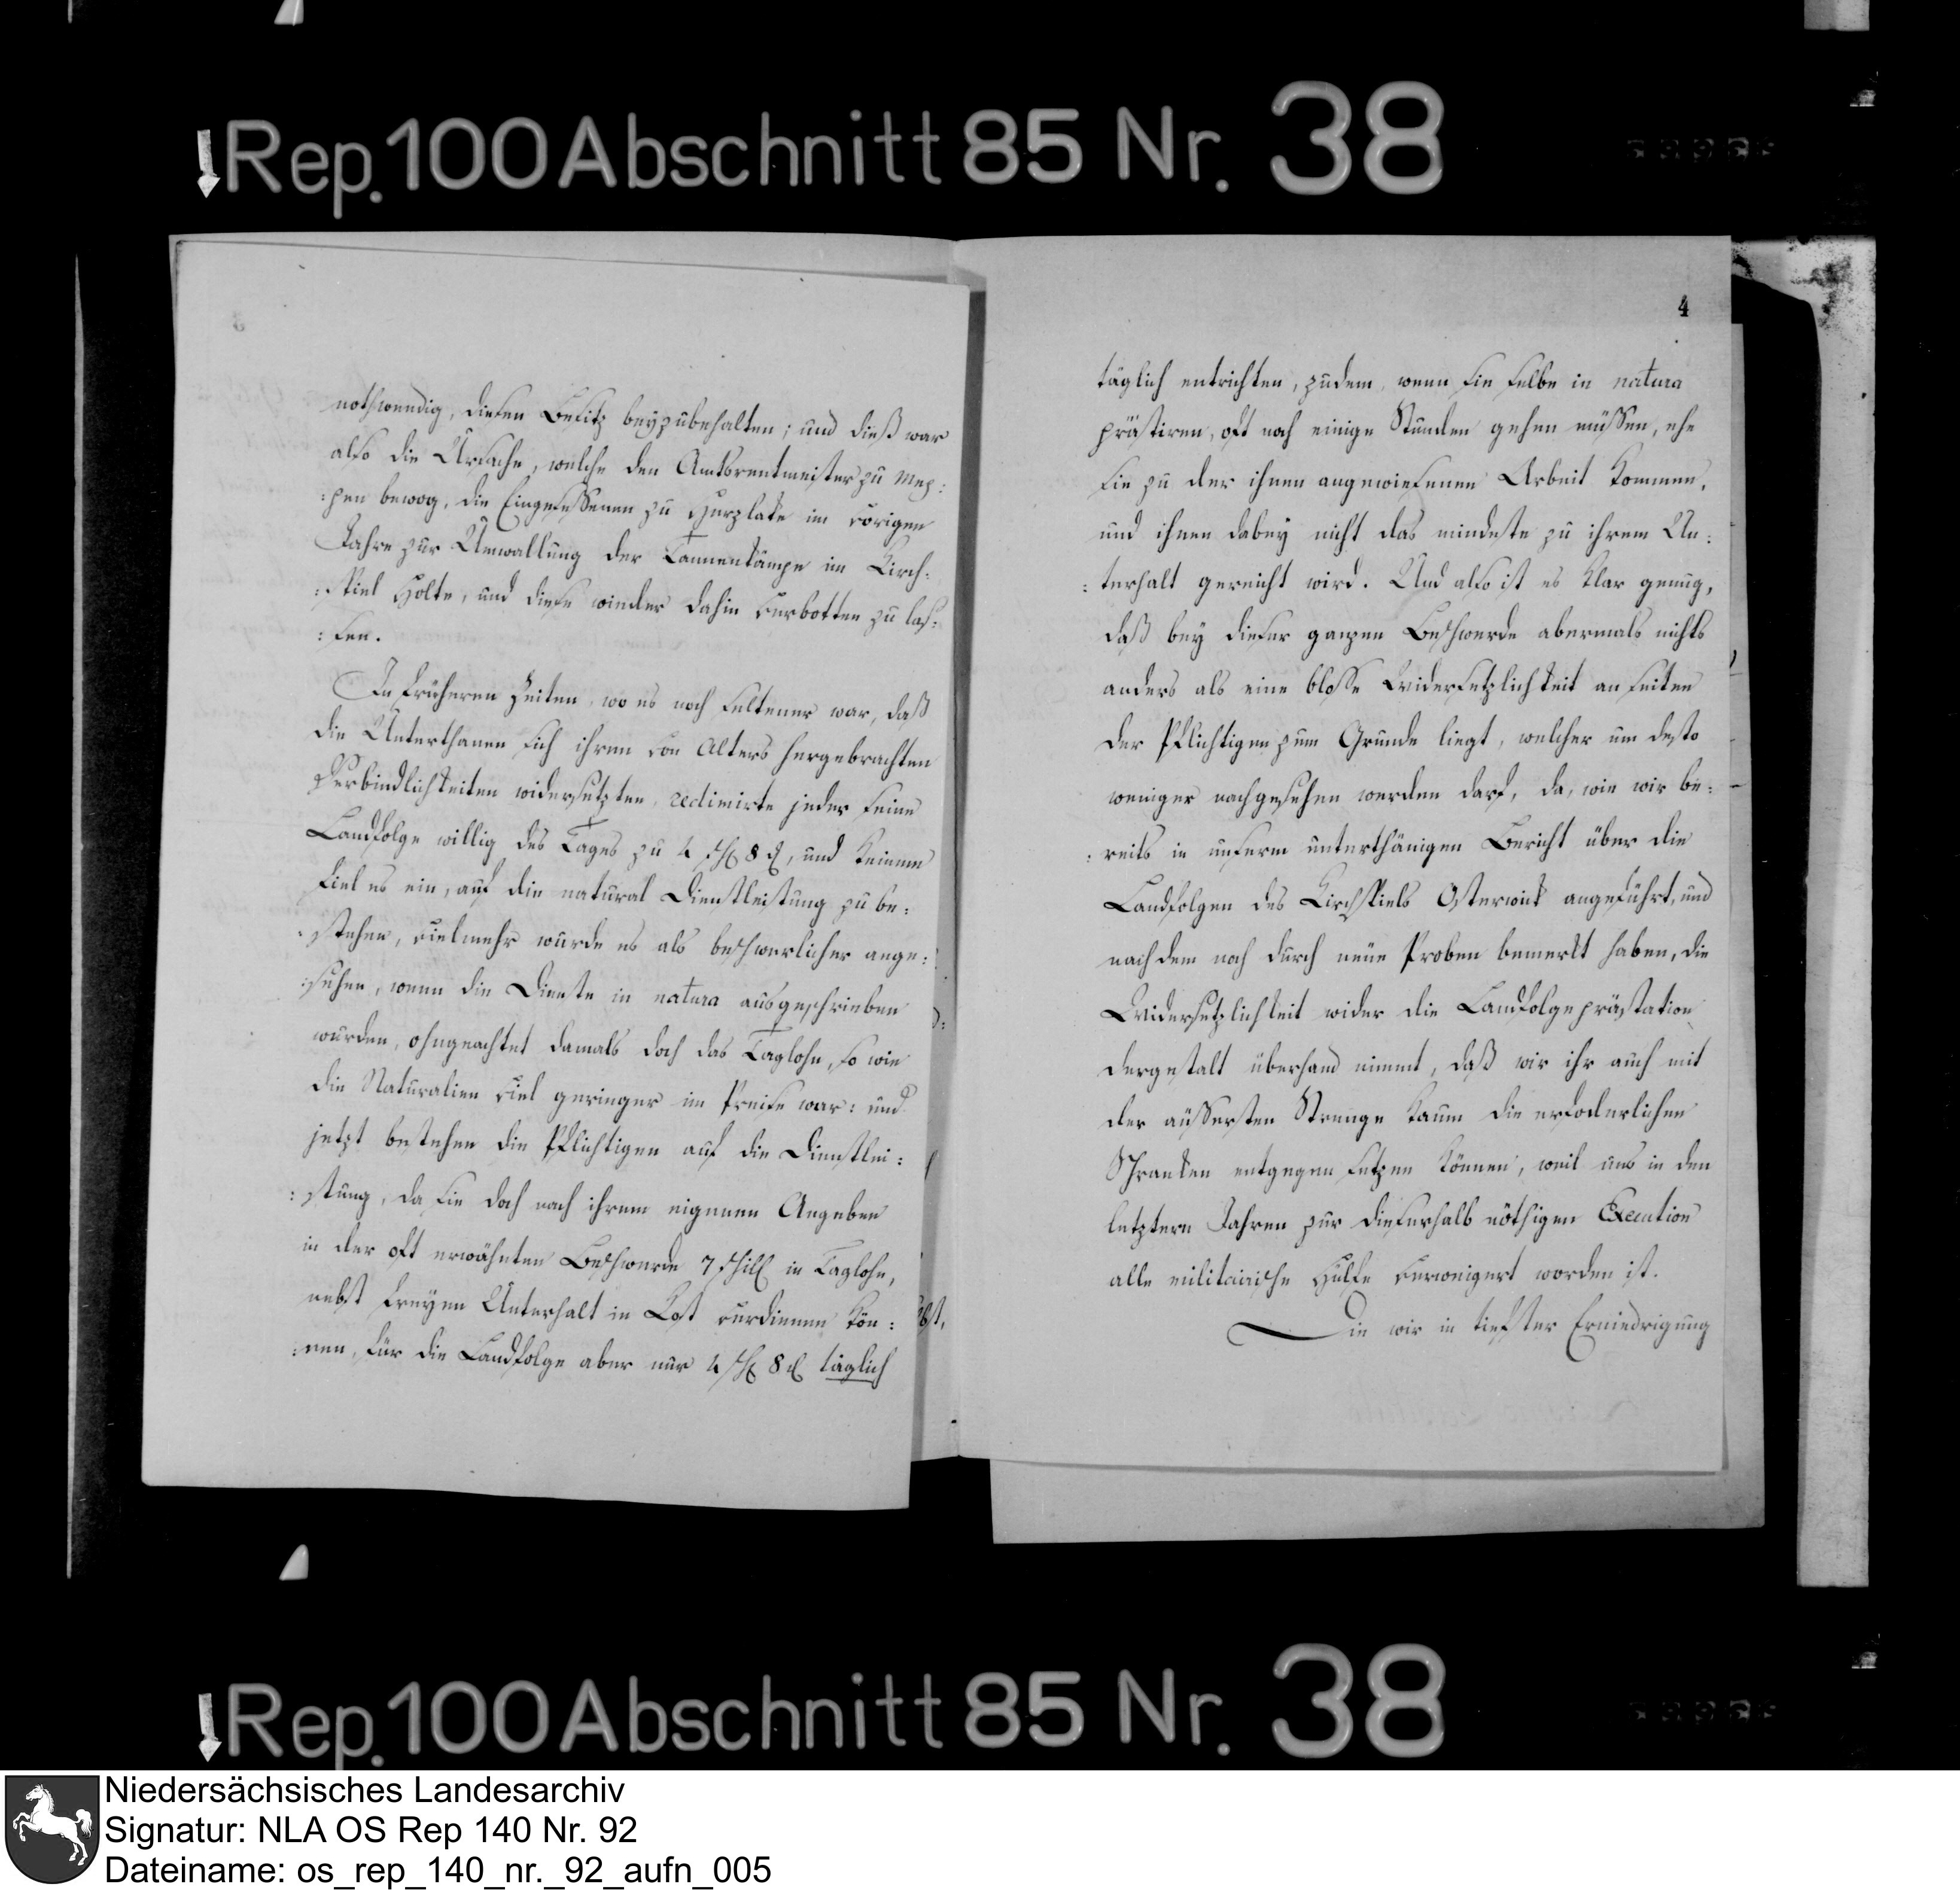 Rep. 100 Abschnitt 85 Nr. 38
nothwendig, diesen Besitz beyzubehalten; und dieß war
also die Ursache, welche den Amtsrentmeister zu Mep:
:pen bewog, die Eingesessenen zu Hurplake im vorigen
Jahre zur Umwallung der Tannenkämpe im Kirch:
:spiel Holte, und diese wieder dahin verbotten zu las:
:sen.
In früheren Zeiten, wo es noch seltener war, daß
die Unterthanen sich ihren von Alters hergebrachten
Verbindlichkeiten widersetzten, redimirte jeder seine
Landfolge willig des Tages zu 4 ß 8 d, und keinem
fiel es ein, auf die natural Dienstleistung zu be:
:stehen, vielmehr wurde es als beschwerlicher ange:
:sehen, wenn die Dienste in natura ausgeschrieben
wurden, ohngeachtet damals doch das Taglohn, so wie
die Naturalien viel geringer im Preise war: und
jetzt bestehen die Pflichtigen auf die Dienstlei:
:stung, da sie doch nach ihrem eigenen Angeben
in der oft erwähnten Beschwerde 7 schill in Taglohn,
nebst freyen Unterhalt in Kost verdienen kön:
:nen, für die Landfolge aber nur 4 ß 8 d täglich
4
täglich entrichten, zudem, wenn sie selbe in natura
prästiren, oft noch einige Stunden gehen müssen, ehe
sie zu der ihnen angewiesenen Arbeit kommen,
und ihnen dabey nicht das mindeste zu ihrem Un:
:terhalt gereicht wird. Und also ist es klar genug,
daß bey dieser ganzen Beschwerde abermals nichts
anders als eine blosse Widersetzlichkeit an seiten
der Pflichtigen zum Grunde liegt, welcher um desto
weniger nachgesehen werden darf, da, wie wir be:
:reits in unserm unterthänigen Bericht über die
Landfolgen des Kirchspiels Osterwick angeführt, und
nach dem noch durch neue Proben bemerkt haben, die
Widersetzlichkeit wider die Landfolgeprästation
dergestalt überhand nimmt, daß wir ihr auch mit
der äussersten Strenge kaum die erfoderlichen
Schranken entgegen setzen können, weil uns in den
letztern Jahren zur dieserhalb nöthigen Execution
alle militairische Hülfe verweigert worden ist.
Die wir in tiefster Erniedrigung
Rep. 100 Abschnitt 85 Nr. 38
Niedersächsisches Landesarchiv
Signatur: NLA OS Rep 140 Nr. 92
Dateiname: os_rep_140_nr._92_aufn_005